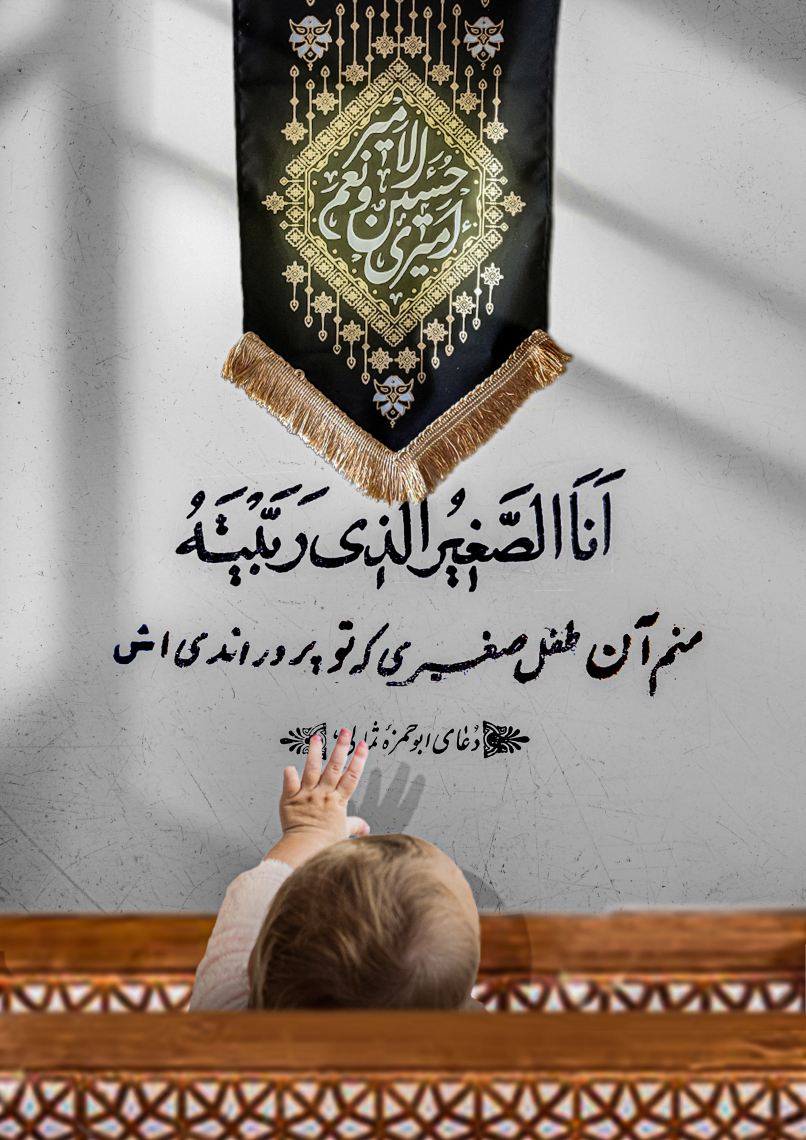 امیری حسین و نعم الامیر
اَنَا الصَّغیرُ الَّذِی رَبَّیْتَهُ
منم آن طفل صغیری که تو پروراندی اش
دُعای ابوحمزهٔ ثمالی